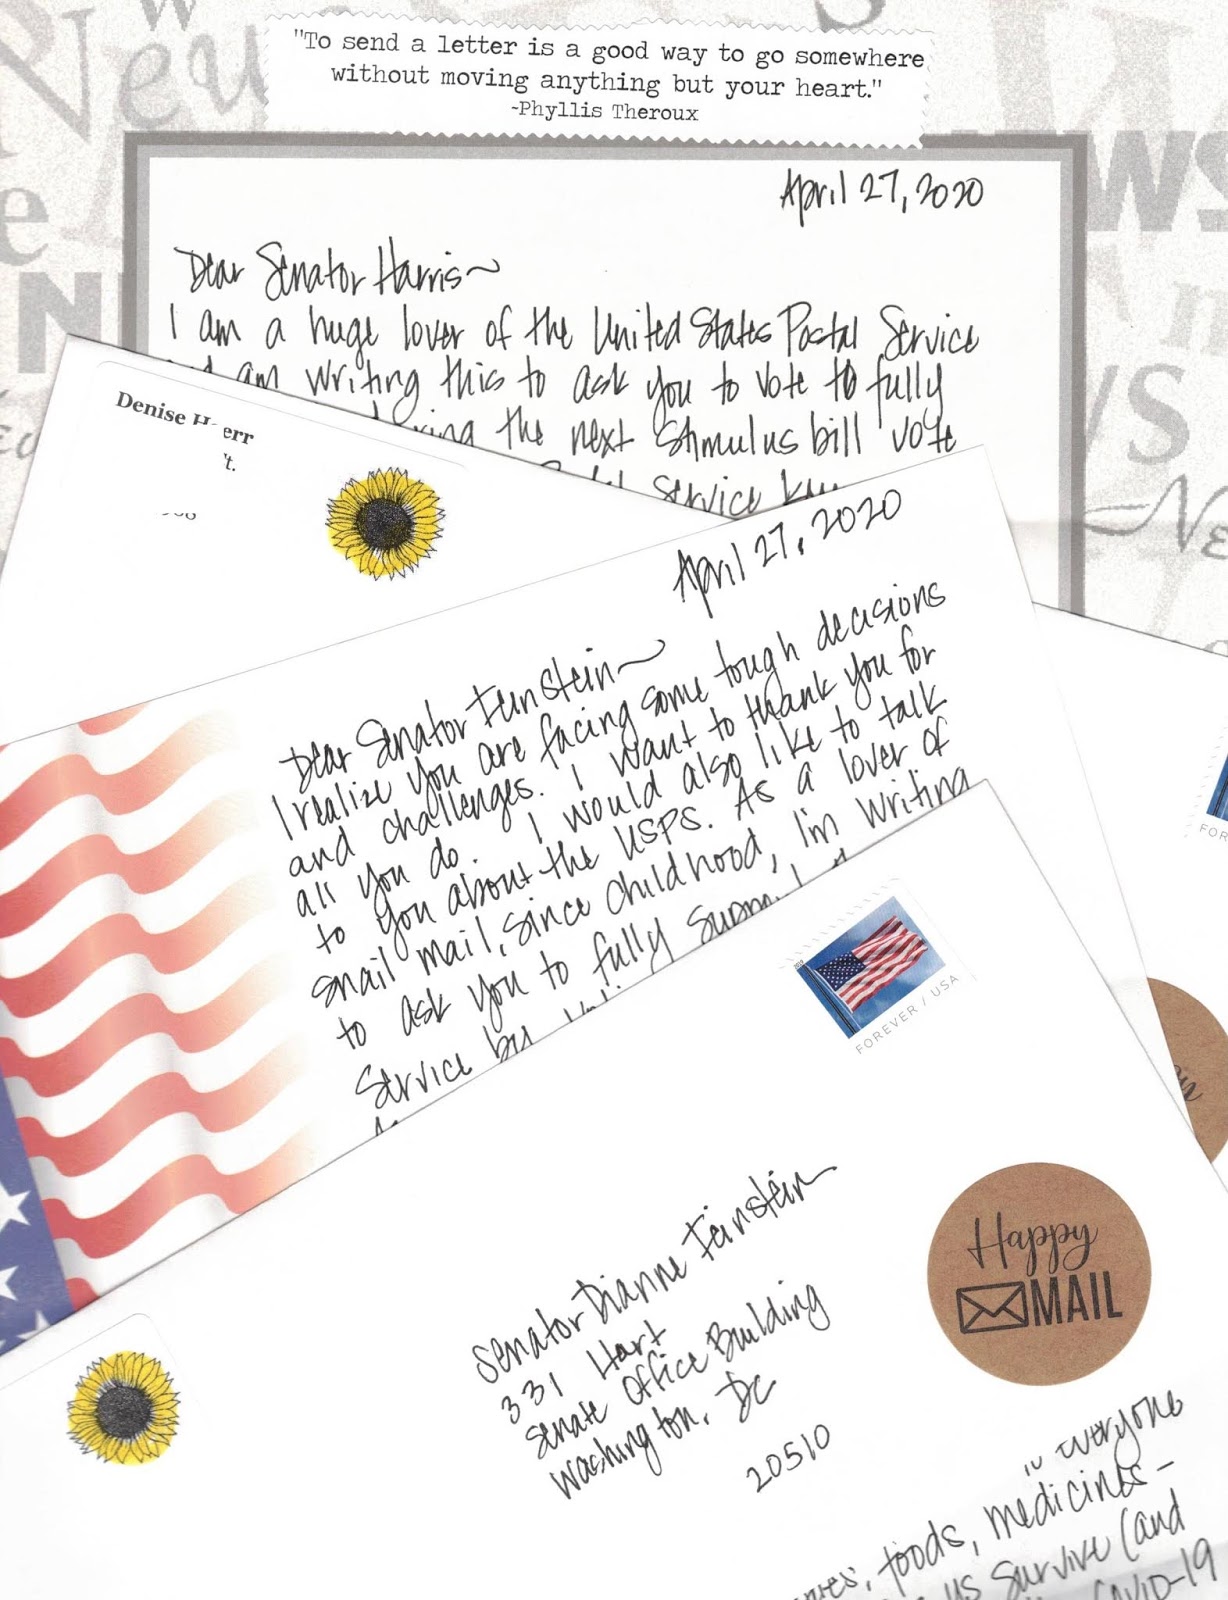 "To send a letter is a good way to go somewhere
without moving anything but your heart."
~Phyllis Theroux
April 27, 2020
Dear Senator Harris~
I am a huge lover of the United States Postal Service
am writing this to ask you to vote to fully
the next stimulus bill vote
Service
Denise
April 27, 2020
Dear Senator Feinstein~
I realize you are facing some tough decisions
and challenges. I want to thank you for
all you do. I would also like to talk
to you about the USPS. As a lover of
snail mail, since childhood, I'm writing
to ask you to fully
Service by
FOREVER / USA
FOR
Senator Dianne Feinstein
331 Hart
Senate Office Building
Washington, DC
20510
Happy
MAIL
everyone
foods, medicines -
us survive (and
COVID-19
News
NEWS